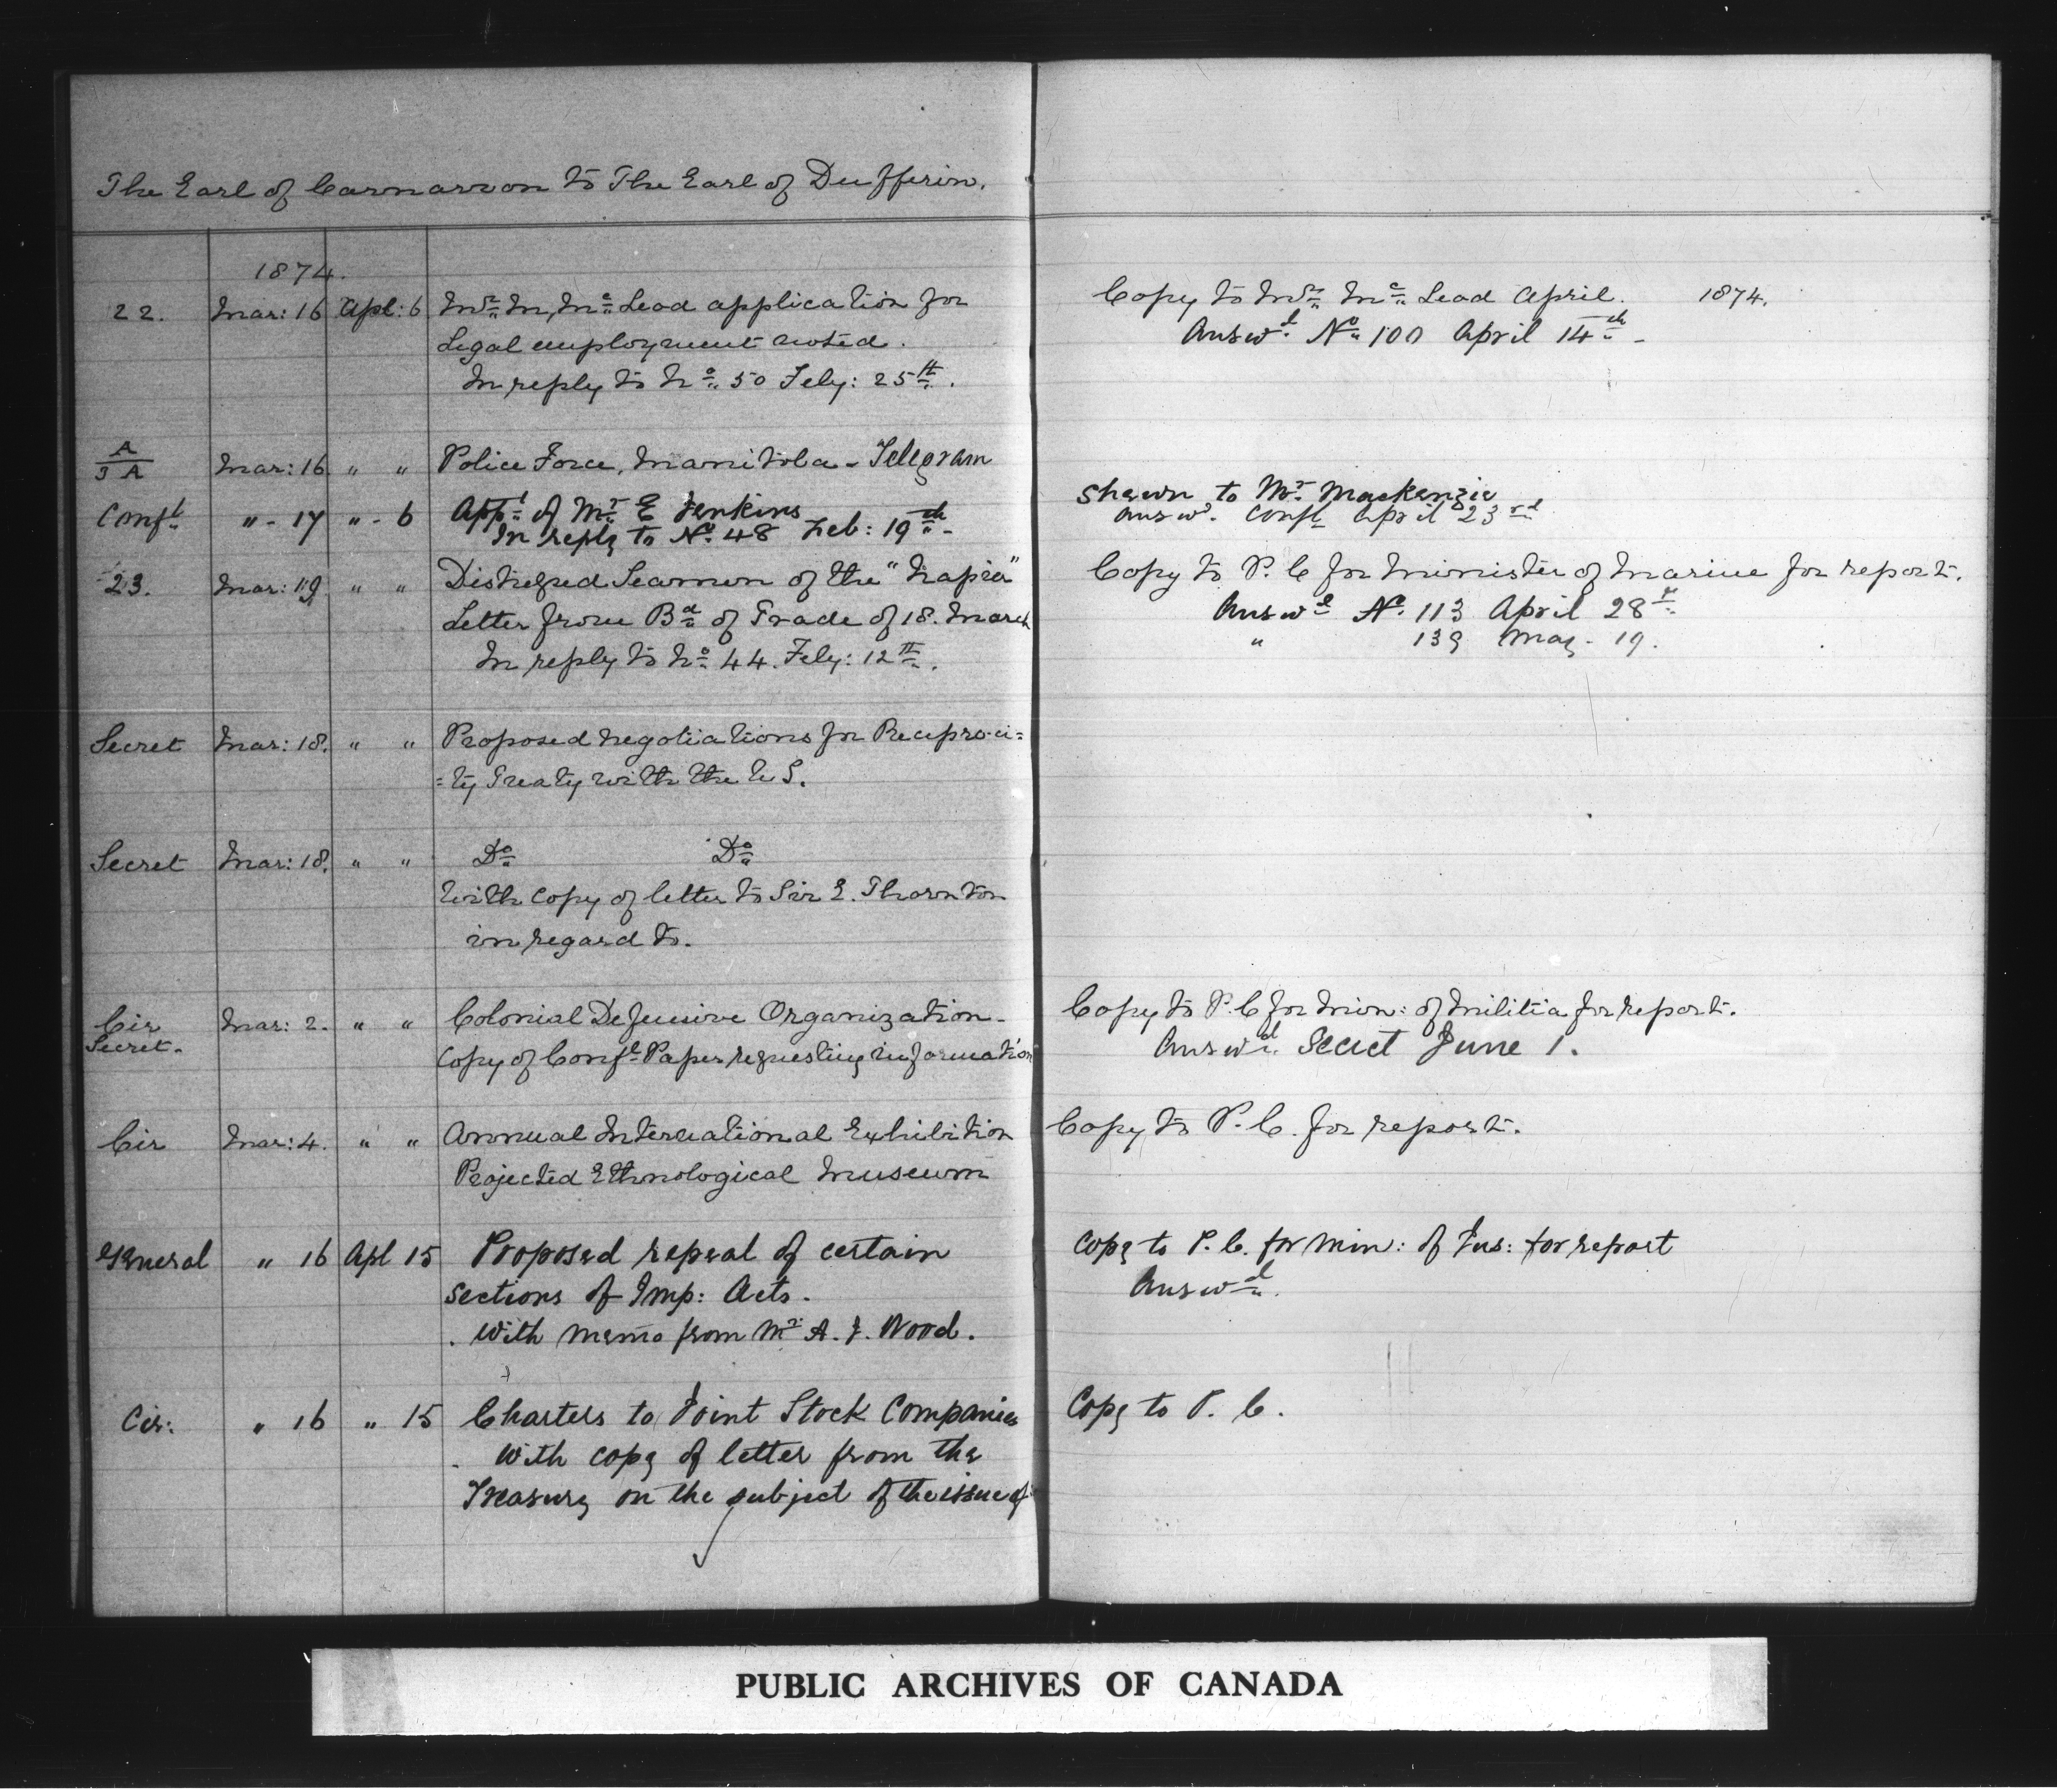 The Earl of Carnarvon to The Earl of Dufferin.
1874.
22. Mar: 16 Apl: 6 Mr. M. Mc. Leod application for
Legal employment noted.
In reply to No. 50 Feby: 25th.
Copy to Mr. Mc. Leod April. 1874.
Answd. No. 100 April 14th -
A
3 A Mar: 16 " " Police Force, Manitoba - Telegram
Confl " - 17 " - 6 Appt. of Mr. E Jenkins
In reply to No. 48 Feb: 19th -
Shewn to Mr. Mackenzie
Answd. Confl April 23rd
23. Mar: 19 " " Distressed Seamen of the "Napier"
Letter from Bd. of Trade of 18. March
In reply to No. 44. Feby: 12th.
Copy to P. C for Minister of Marine for report.
Answd No. 113 April 28th
" 139 May - 19.
Secret Mar: 18. " " Proposed negotiations for Reciproci=
=ty Treaty with the U S.
Secret Mar: 18. " " Do Do
With copy of letter to Sir E. Thornton
in regard to.
Cir Mar: 2. " " Colonial Defensive Organization -
Secret.
Copy of Confl Paper requesting information
Copy to P. C for Min: of Militia for report.
Answd. Secret June 1.
Cir Mar: 4. " " Annual International Exhibition
Projected Ethnological Museum
Copy to P. C. for report.
General " 16 Apl 15 Proposed repeal of certain
sections of Imp: Acts.
. With memo from Mr. A. J. Wood.
Copy to P. C. for Min: of Jus: for report
Answd.
Cir: " 16 " 15 Charters to Joint Stock Companies
. With copy of letter from the
Treasury on the subject of the issue of
Copy to P. C.
PUBLIC ARCHIVES OF CANADA